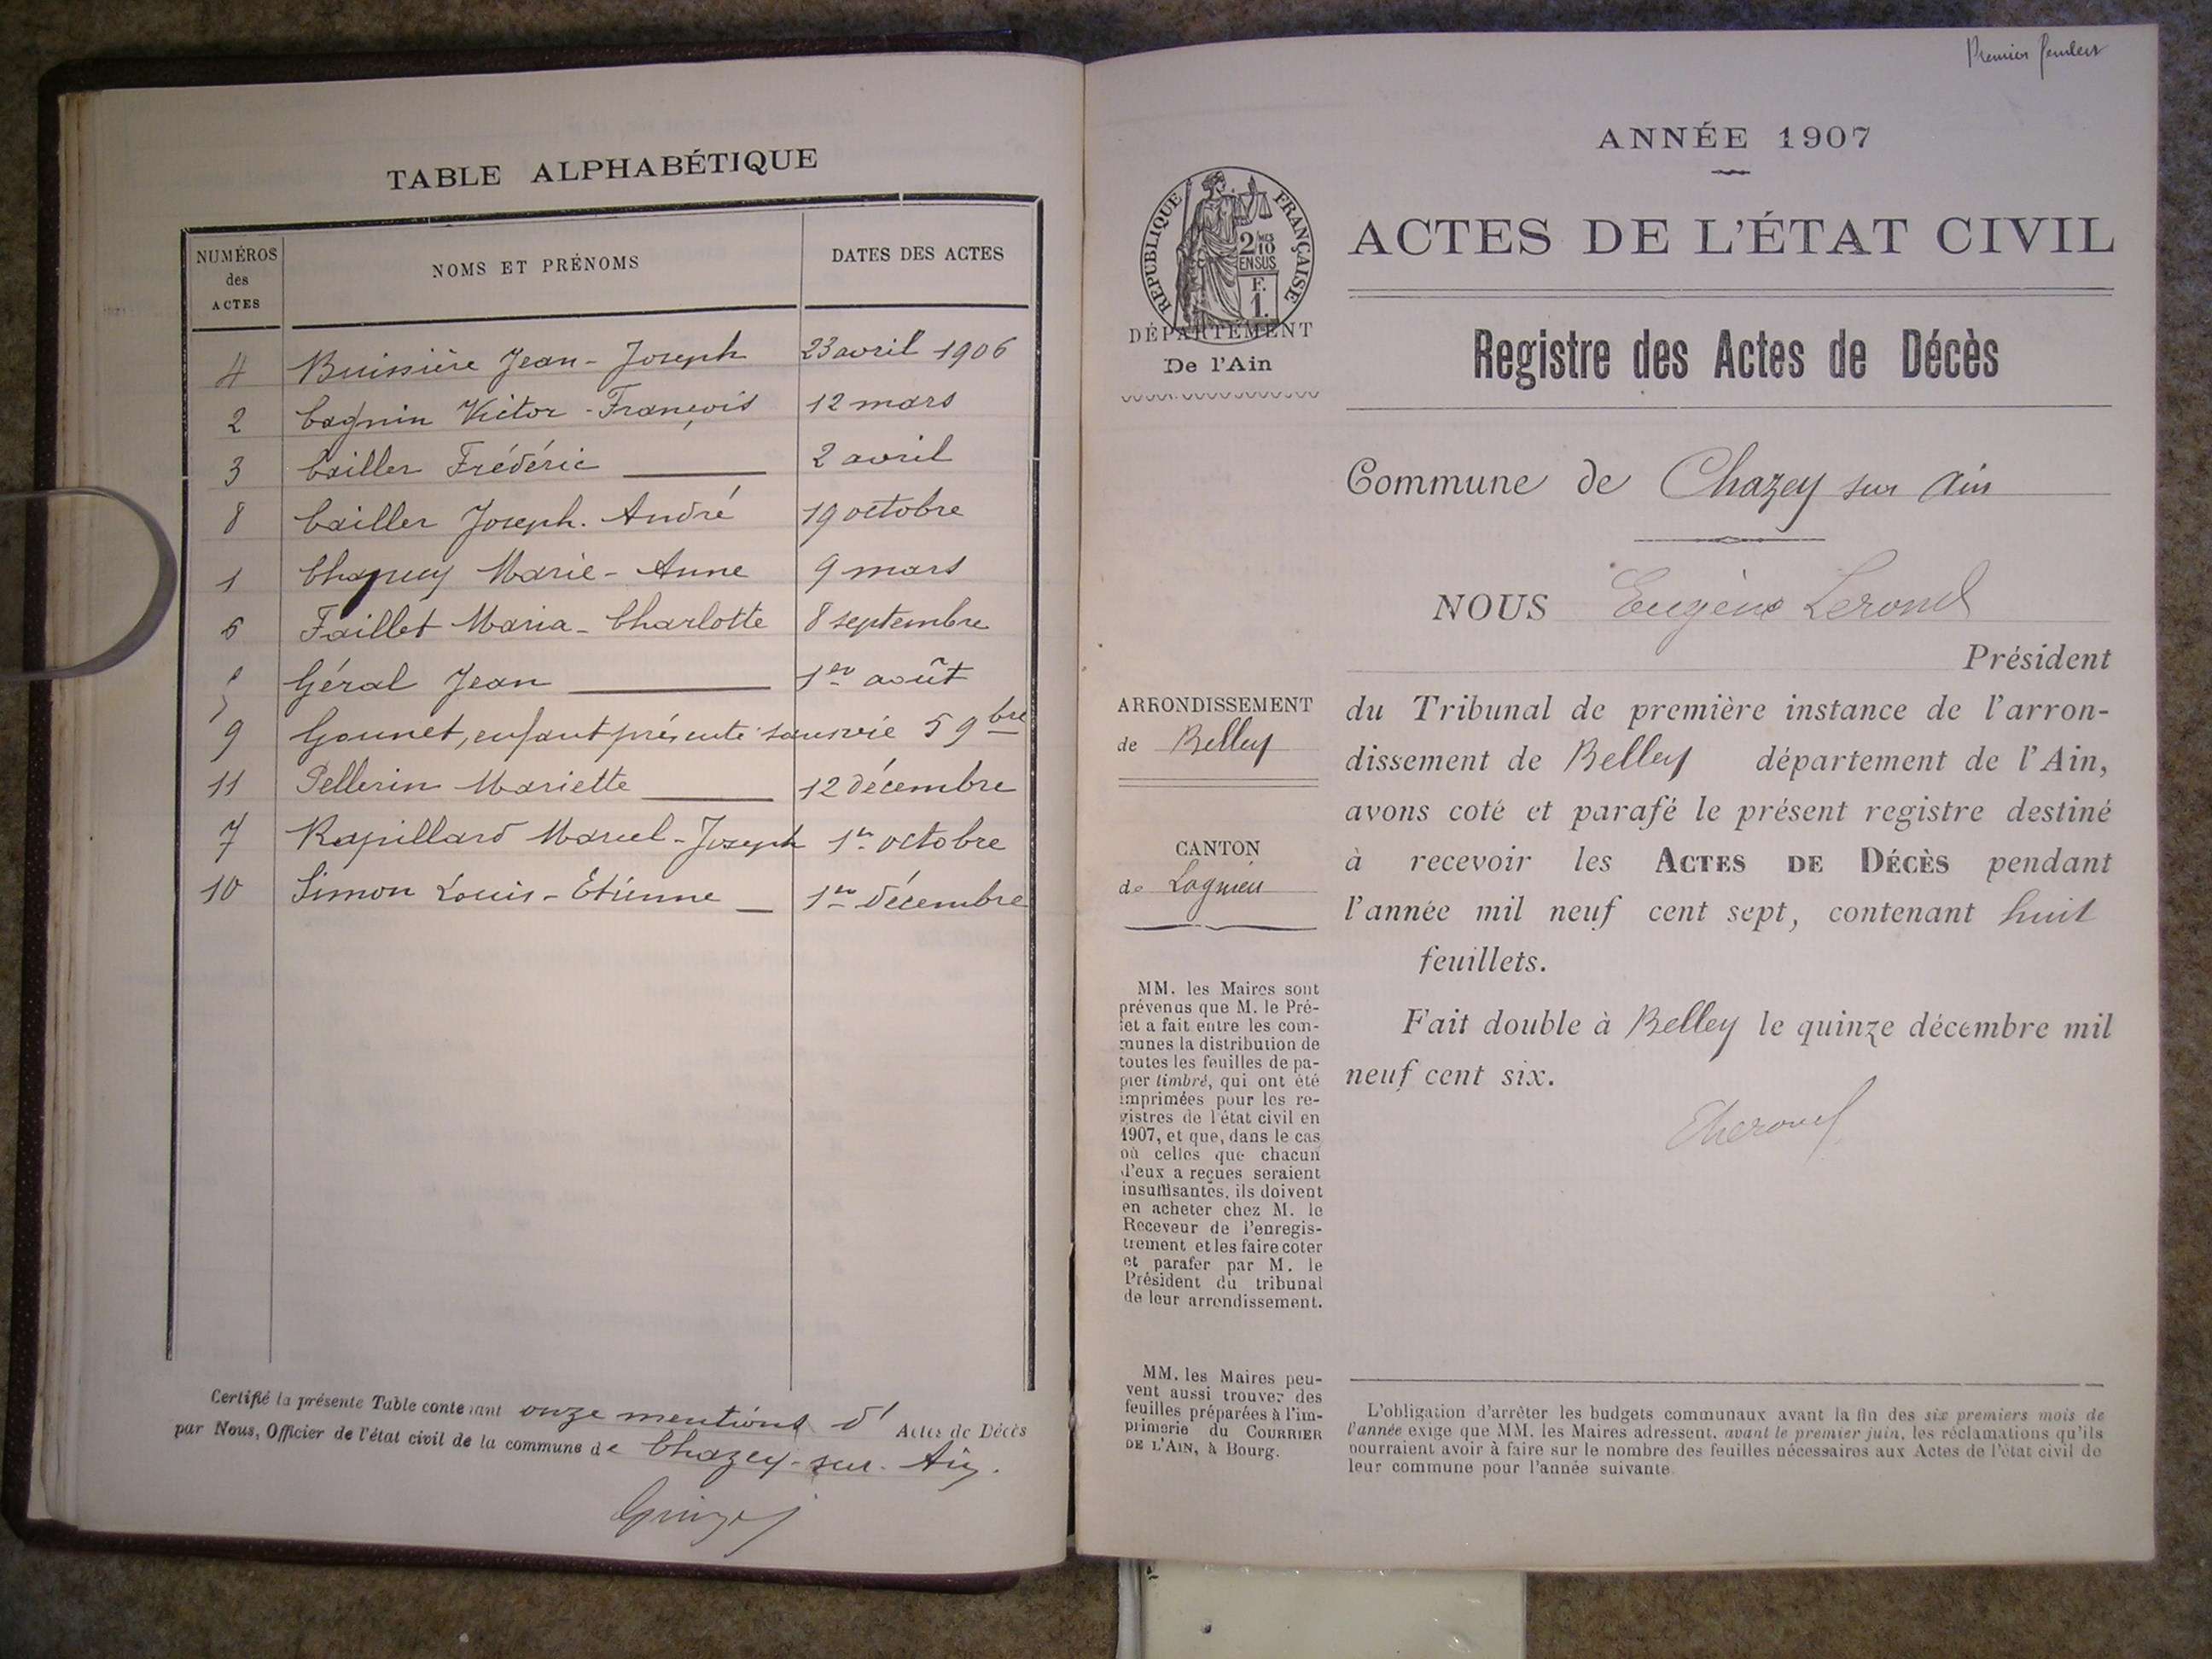 TABLE ALPHABÉTIQUE
NUMÉROS des ACTES
NOMS ET PRÉNOMS
DATES DES ACTES
4 Buissière Jean-Joseph 23 avril 1906
2 Cagnin Victor-François 12 mars
3 Cailler Frédéric 2 avril
8 Cailler Joseph. André 19 octobre
1 Chapuy Marie-Anne 9 mars
6 Faillet Maria-Charlotte 8 septembre
5 Géral Jean 1er août
9 Gounet, enfant présenté sans vie 5 9bre
11 Pellerin Mariette 12 décembre
7 Rapillard Marcel-Joseph 1er octobre
10 Simon Louis-Etienne 1er décembre
Certifié la présente Table contenant onze mentions d' Actes de Décès
par Nous, Officier de l'état civil de la commune de Chazey-sur-Ain.
Premier feuillet
ANNÉE 1907
RÉPUBLIQUE FRANÇAISE
2/10MES
EN SUS
F.
1.
ACTES DE L'ÉTAT CIVIL
DÉPARTEMENT
De l'Ain
Registre des Actes de Décès
Commune de Chazey sur Ain
NOUS Eugène Lerond
Président
du Tribunal de première instance de l'arron-
dissement de Belley département de l'Ain,
avons coté et parafé le présent registre destiné
à recevoir les ACTES DE DÉCÈS pendant
l'année mil neuf cent sept, contenant huit
feuillets.
Fait double à Belley le quinze décembre mil
neuf cent six.
ARRONDISSEMENT
de Belley
CANTON
de Lagnieu
MM. les Maires sont
prévenus que M. le Pré-
fet a fait entre les com-
munes la distribution de
toutes les feuilles de pa-
pier timbré, qui ont été
imprimées pour les re-
gistres de l'état civil en
1907, et que, dans le cas
où celles que chacun
d'eux a reçues seraient
insuffisantes, ils doivent
en acheter chez M. le
Receveur de l'enregis-
trement et les faire coter
et parafer par M. le
Président du tribunal
de leur arrondissement.
MM. les Maires peu-
vent aussi trouver des
feuilles préparées à l'im-
primerie du COURRIER
DE L'AIN, à Bourg.
L'obligation d'arrêter les budgets communaux avant la fin des six premiers mois de
l'année exige que MM. les Maires adressent, avant le premier juin, les réclamations qu'ils
pourraient avoir à faire sur le nombre des feuilles nécessaires aux Actes de l'état civil de
leur commune pour l'année suivante.